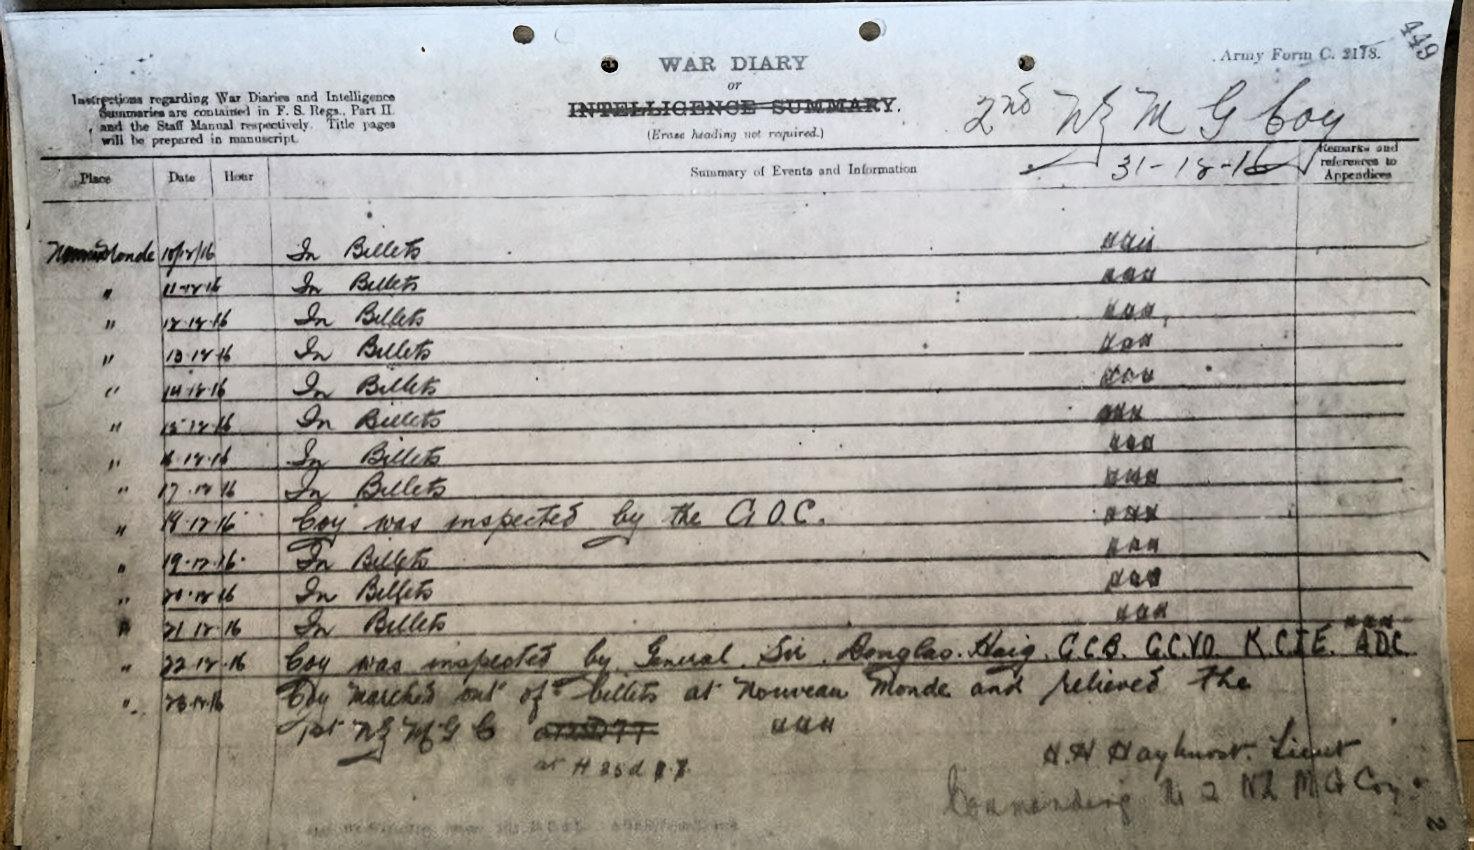 449
Army Form C. 2118.
WAR DIARY
or
INTELLIGENCE SUMMARY.
(Erase heading not required.)
Instructions regarding War Diaries and Intelligence
Summaries are contained in F. S. Regs., Part II.
and the Staff Manual respectively. Title pages
will be prepared in manuscript.
2nd NZ M G Coy
31-12-16
Place Date Hour Summary of Events and Information Remarks and references to Appendices
Monde 10/12/16 In Billets
" 11-12-16 In Billets
" 12-12-16 In Billets
" 13-12-16 In Billets
" 14-12-16 In Billets
" 15-12-16 In Billets
" 16-12-16 In Billets
" 17-12-16 In Billets
" 18-12-16 Coy was inspected by the G.O.C.
" 19-12-16 In Billets
" 20-12-16 In Billets
" 21-12-16 In Billets
" 22-12-16 Coy was inspected by General Sir Douglas Haig. G.C.B. G.C.V.O. K.C.I.E. ADC
" 23-12-16 Coy marched out of billets at Nouveau Monde and relieved the
1st NZ M G C
at H 35d
H.H Hayhurst. Lieut
Commanding No 2 NZ M G Coy.